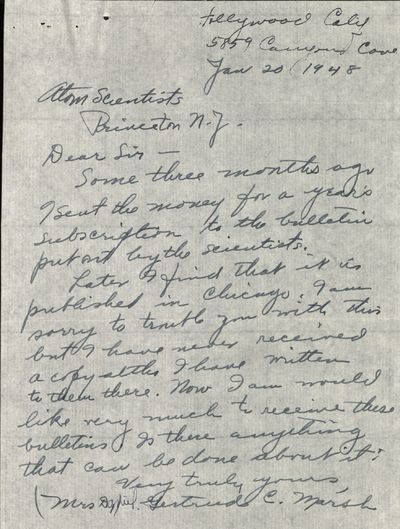 Hollywood Calif
5859 Canyon Cove
Jan 20 1948
Atom Scientists
Princeton N.J.
Dear Sir —
Some three months ago
I sent the money for a years
subscription to the bulletin
put out by the scientists.
Later I find that it is
published in Chicago. I am
sorry to trouble you with this
but I have never received
a copy altho I have written
to them there. Now I am would
like very much to receive these
bulletins Is there anything
that can be done about it?
Very truly yours,
(Mrs Gertrude C. Marsh